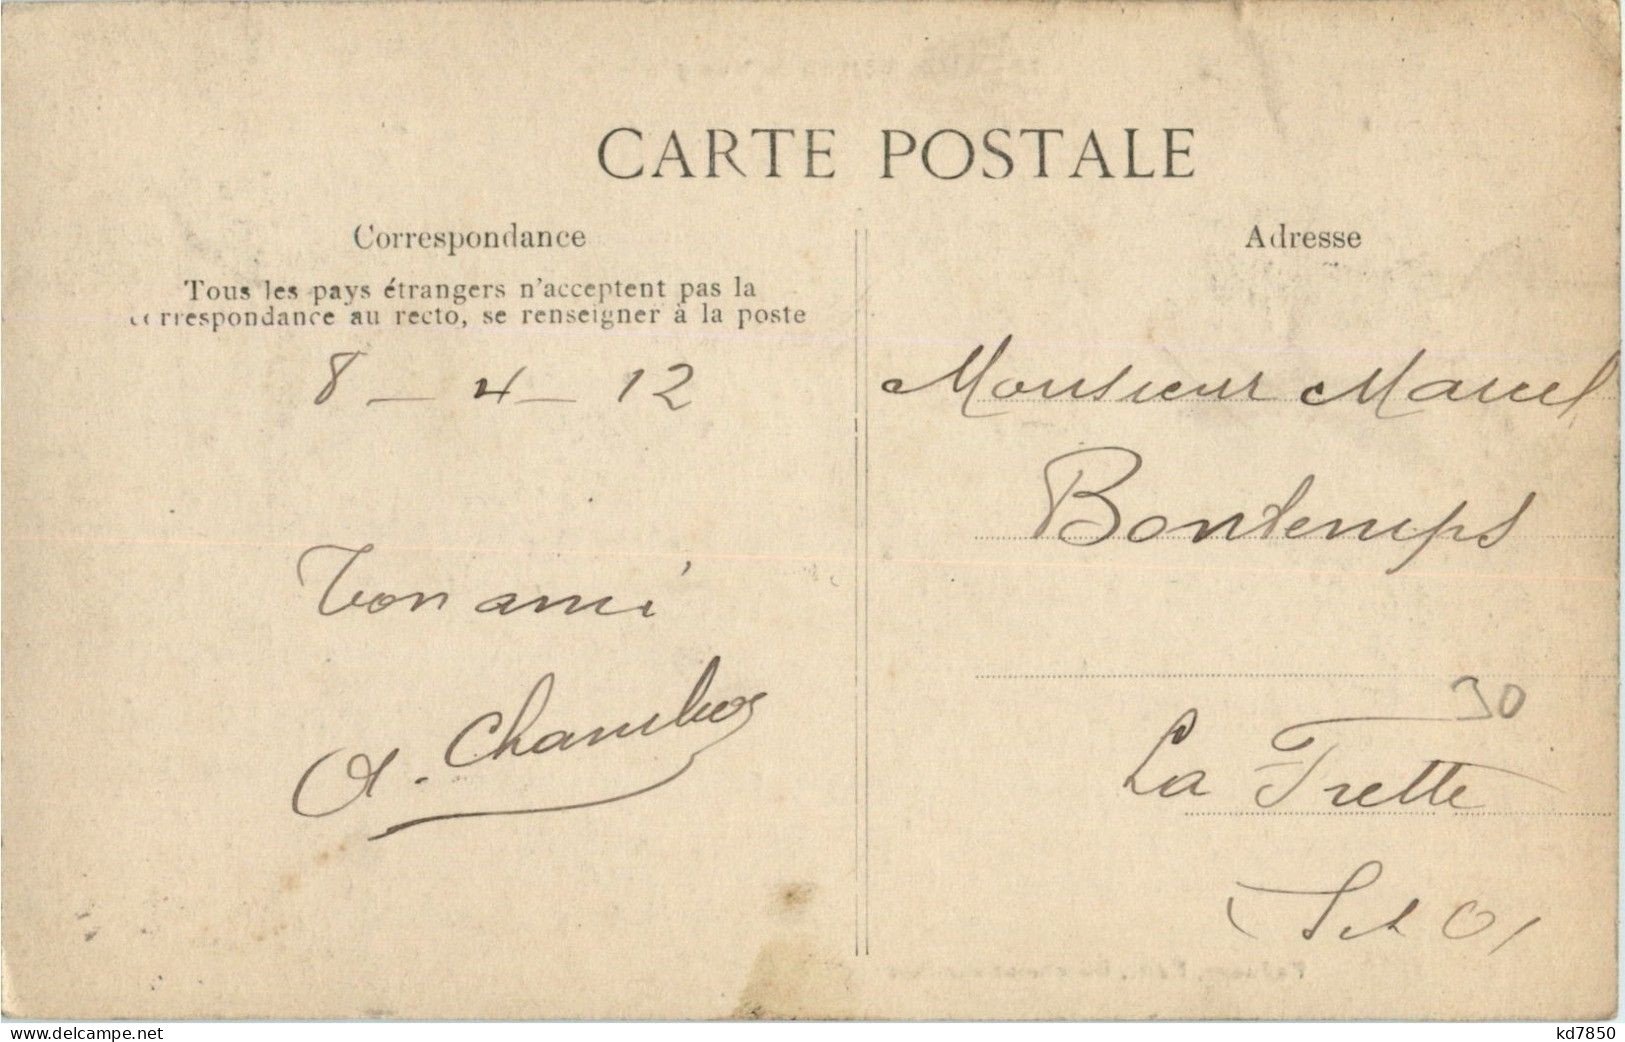 CARTE POSTALE
Correspondance
Tous les pays étrangers n'acceptent pas la
correspondance au recto, se renseigner à la poste
8 - 4 - 12
Ton ami
A. Chambos
Adresse
Monsieur Marcel
Bontemps
30
La Frette
S et O
delcampe.net
kd7850